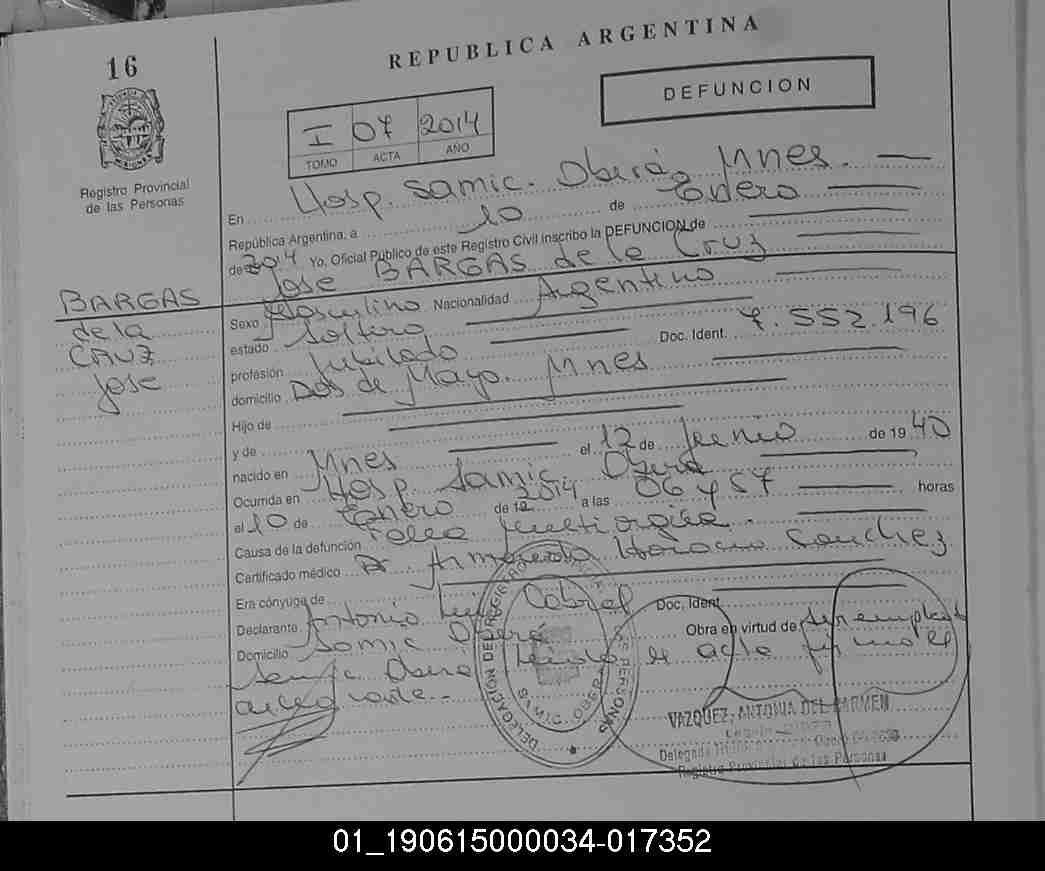 16
REPUBLICA ARGENTINA
DEFUNCION
I 07 2014
TOMO ACTA AÑO
Registro Provincial
de las Personas
En Hosp. Samic. Oberá, Mnes.
República Argentina, a 10 de Enero
de 2014 Yo, Oficial Público de este Registro Civil inscribo la DEFUNCION de
Jose BARGAS de la Cruz
BARGAS
de la
CRUZ
Jose
Sexo Masculino Nacionalidad Argentino
estado Soltero
profesión Jubilado Doc. Ident. 7.552.196
domicilio Dos de Mayo. Mnes
Hijo de
y de
nacido en Mnes el 12 de Junio de 19 40
Ocurrida en Hosp. Samic. Oberá
el 10 de Enero de 2014 a las 06 y 57 horas
Causa de la defunción Falla multiorgica.
Certificado médico Dr Horacio Sanchez
Era cónyuge de
Declarante Antonio Luis Cabriel Doc. Ident.
Domicilio Samic Oberá Obra en virtud de ser empleado
Samic Obera de acta
DELEGACION DE REGISTRO DE PERSONAS
SAMIC. OBERA
VAZQUEZ, ANTONIA DEL CARMEN
Registro Provincial de las Personas
01_190615000034-017352